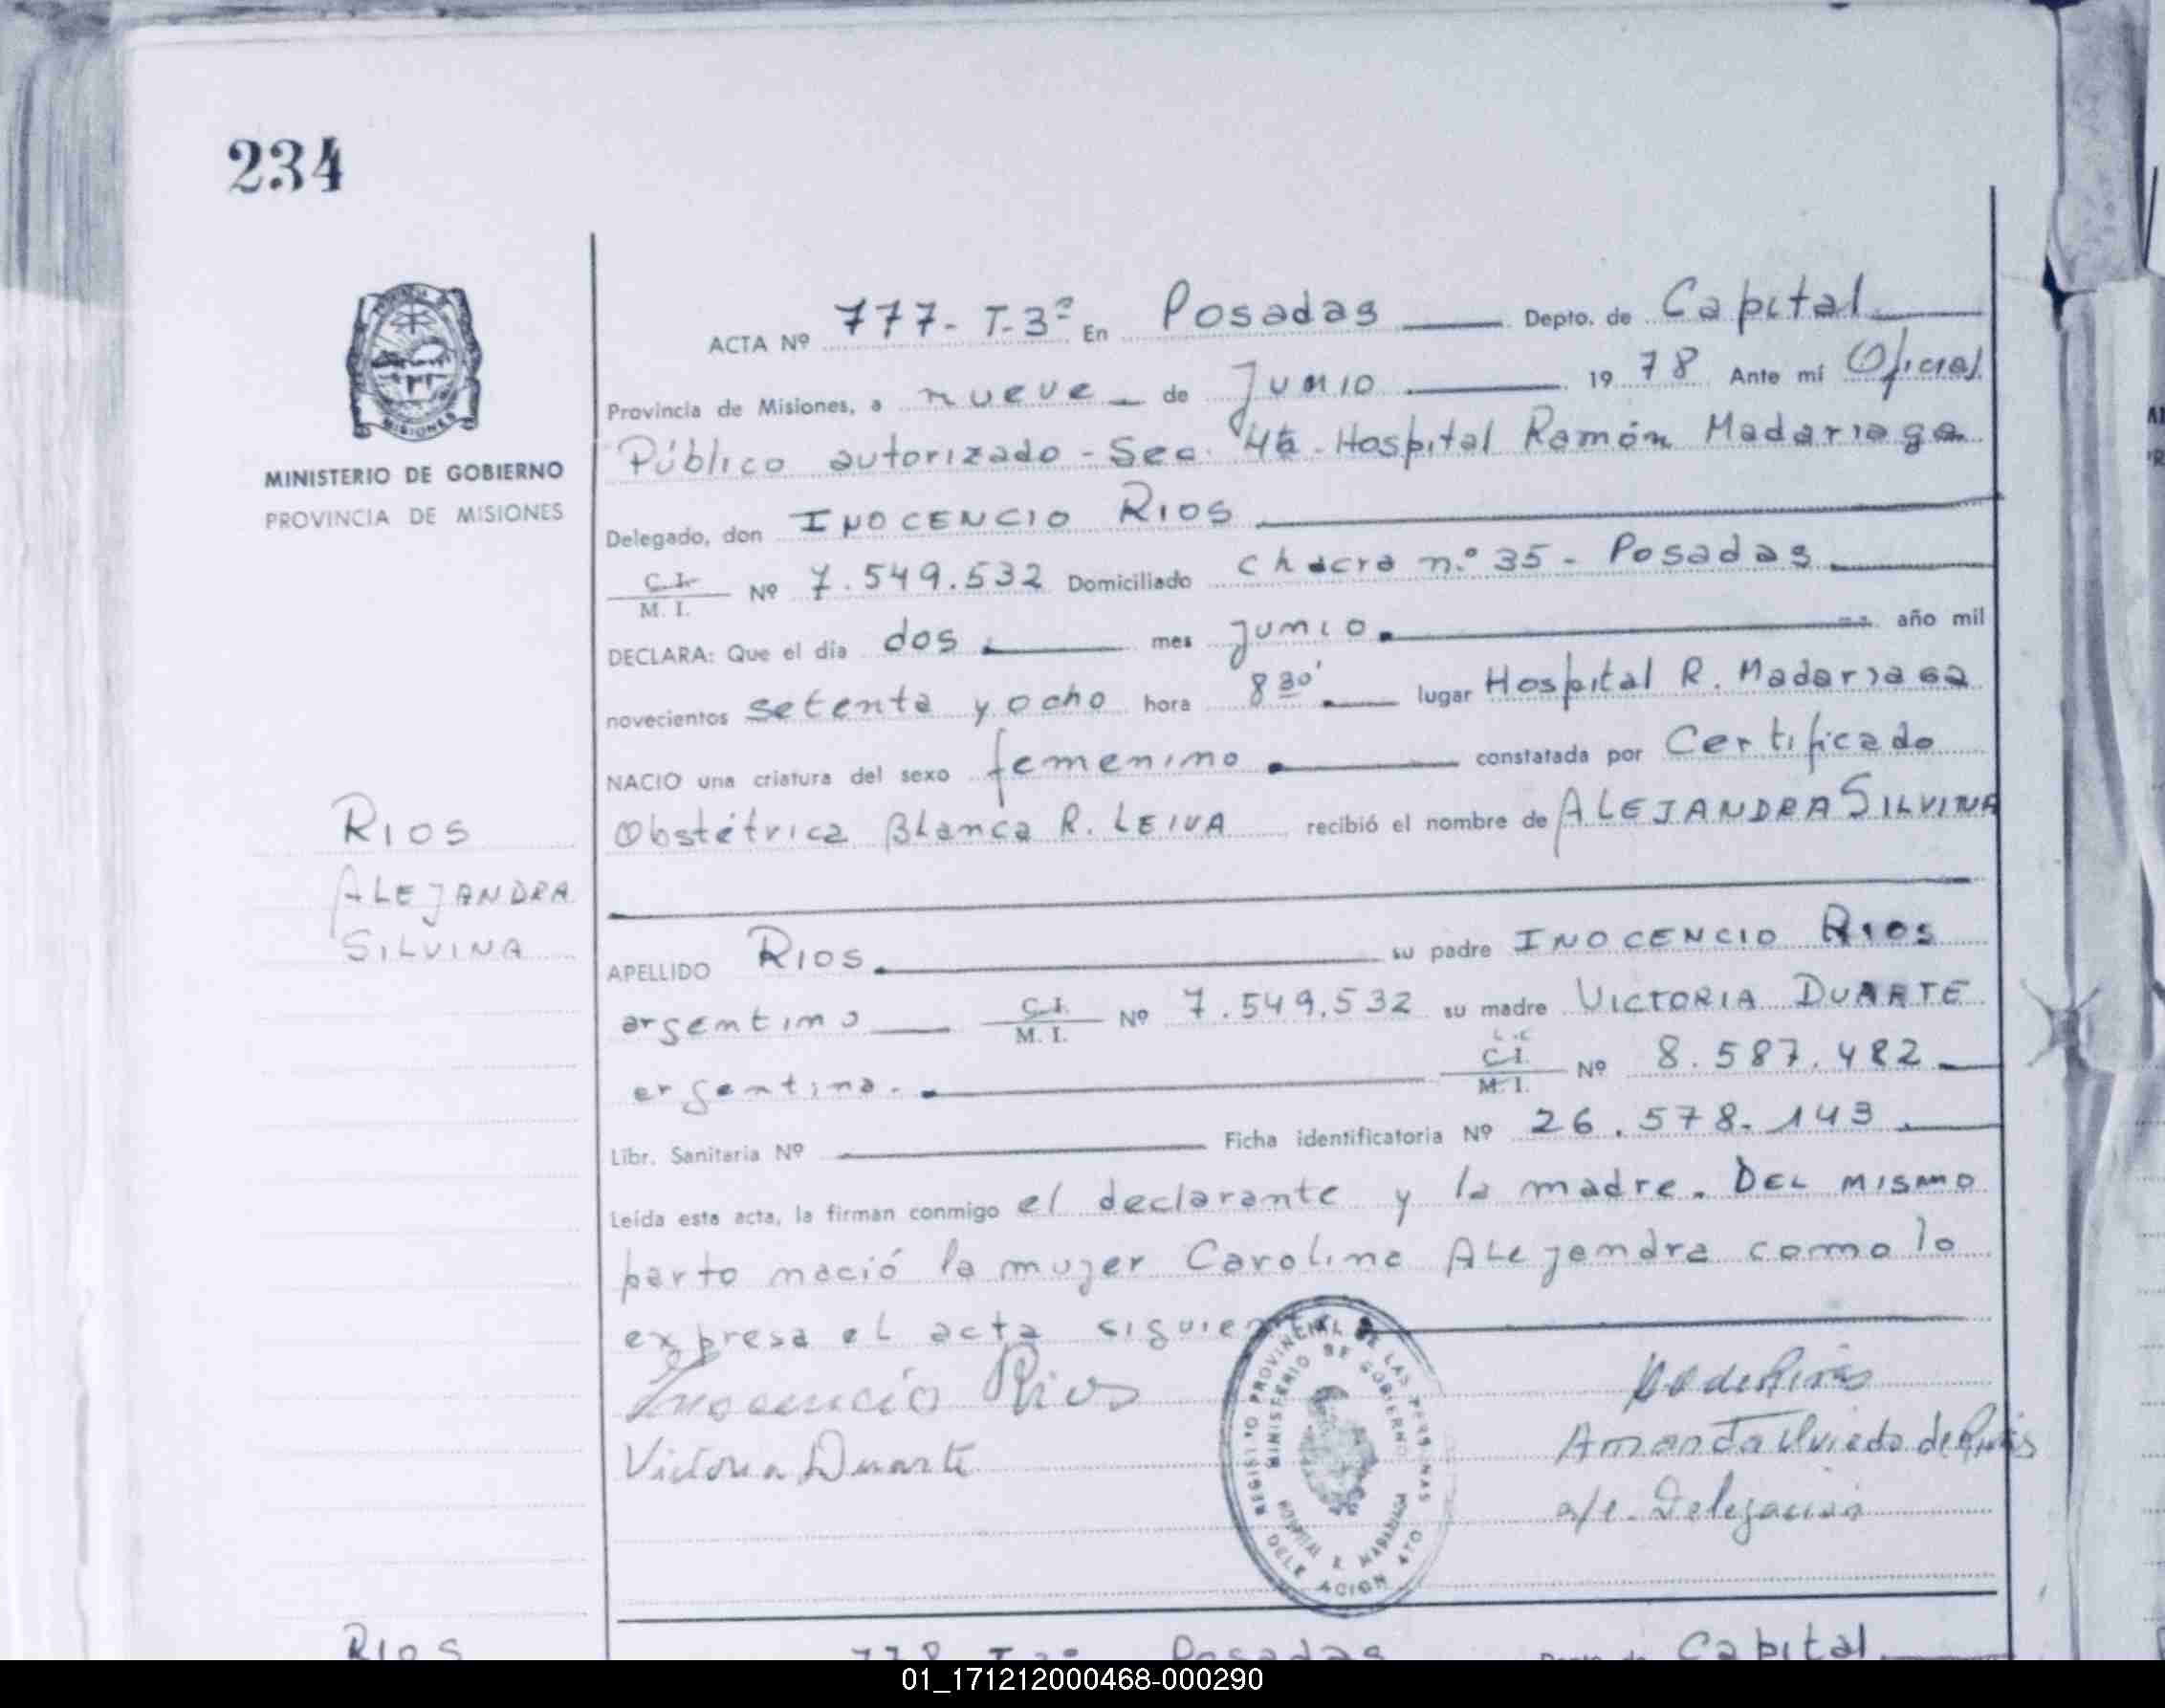 234
MINISTERIO DE GOBIERNO
PROVINCIA DE MISIONES
ACTA Nº 777- T-3º En Posadas Depto. de Capital
Provincia de Misiones, a nueve de Junio 1978 Ante mí Oficial
Público autorizado - Sec. 4ta - Hospital Ramón Madariaga
Delegado, don INOCENCIO RIOS
C.I. M. I. Nº 7.549.532 Domiciliado chacra n.º 35 - Posadas
DECLARA: Que el día dos mes junio año mil
novecientos setenta y ocho hora 8 30' lugar Hospital R. Madariaga
NACIO una criatura del sexo femenino constatada por Certificado
Obstétrica Blanca R. LEIVA recibió el nombre de ALEJANDRA SILVINA
RIOS
ALEJANDRA
SILVINA
APELLIDO RIOS su padre INOCENCIO RIOS
argentino C.I. M. I. Nº 7.549.532 su madre VICTORIA DUARTE
argentina. L.C C.I. M. I. Nº 8.587.482
Libr. Sanitaria Nº Ficha identificatoria Nº 26.578.143
Leída esta acta, la firman conmigo el declarante y la madre. DEL MISMO
parto nació la mujer Carolina Alejandra como lo
expresa el acta siguiente
Inocencio Rios
Victoria Duarte
Amanda Oviedo de
a/c. Delegación
REGISTRO PROVINCIAL DE LAS PERSONAS
MINISTERIO DE GOBIERNO
MADARIAGA
RIOS
778 T-3º Posadas Depto. de Capital
01_171212000468-000290